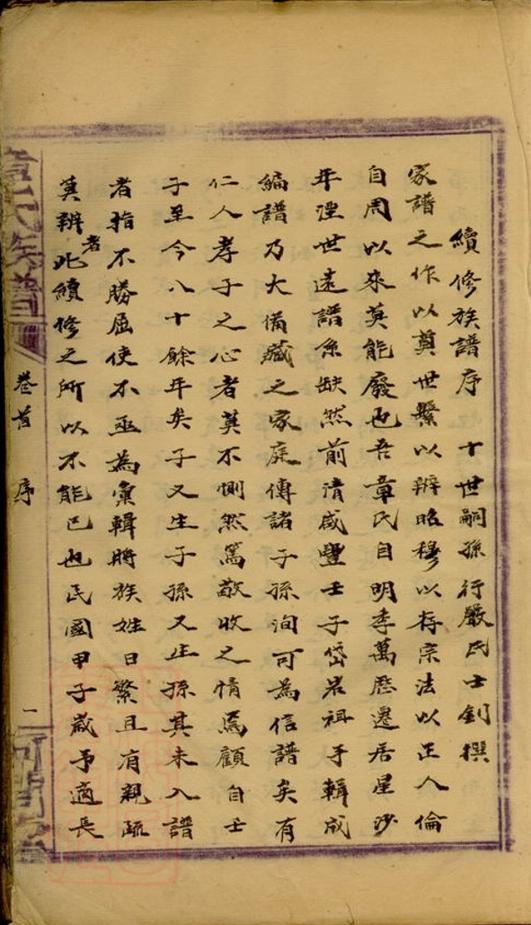 續修族譜序 十世嗣孫行嚴氏士釗撰
家譜之作以奠世繫以辨昭穆以存宗法以正人倫
自周以來莫能廢也吾章氏自明季萬厯遷居星沙
年湮世遠譜系缺然前清咸豐壬子岱岩祖手輯成
編譜乃大備藏之家庭傳諸子孫洵可為信譜矣有
仁人孝子之心者莫不惻然篤敬收之情焉顧自壬
子至今八十餘年矣子又生子孫又生孫其未入譜
者指不勝屈使不亟為彙輯將族姓日繁且有親疏
莫辨者此續修之所以不能已也民國甲子歲予適長
章氏族譜
卷首 序
一